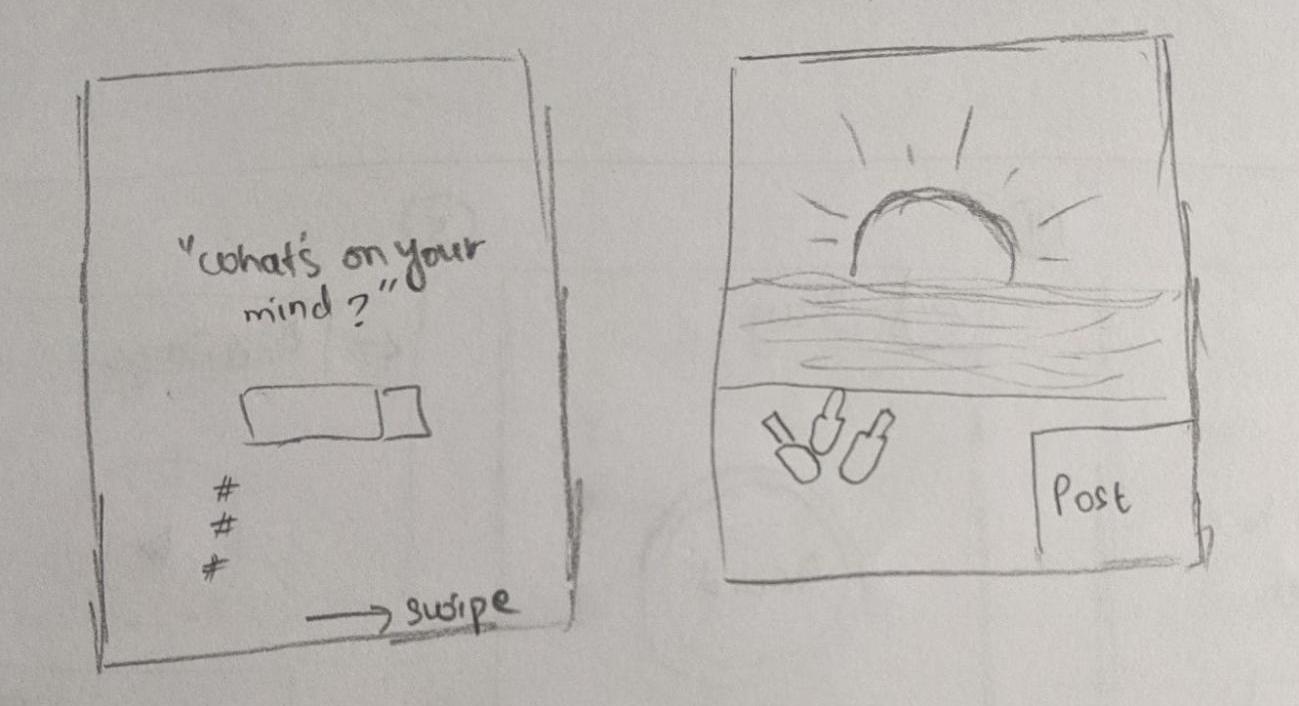 "what's on your
mind?"
#
#
#
→ swipe
Post